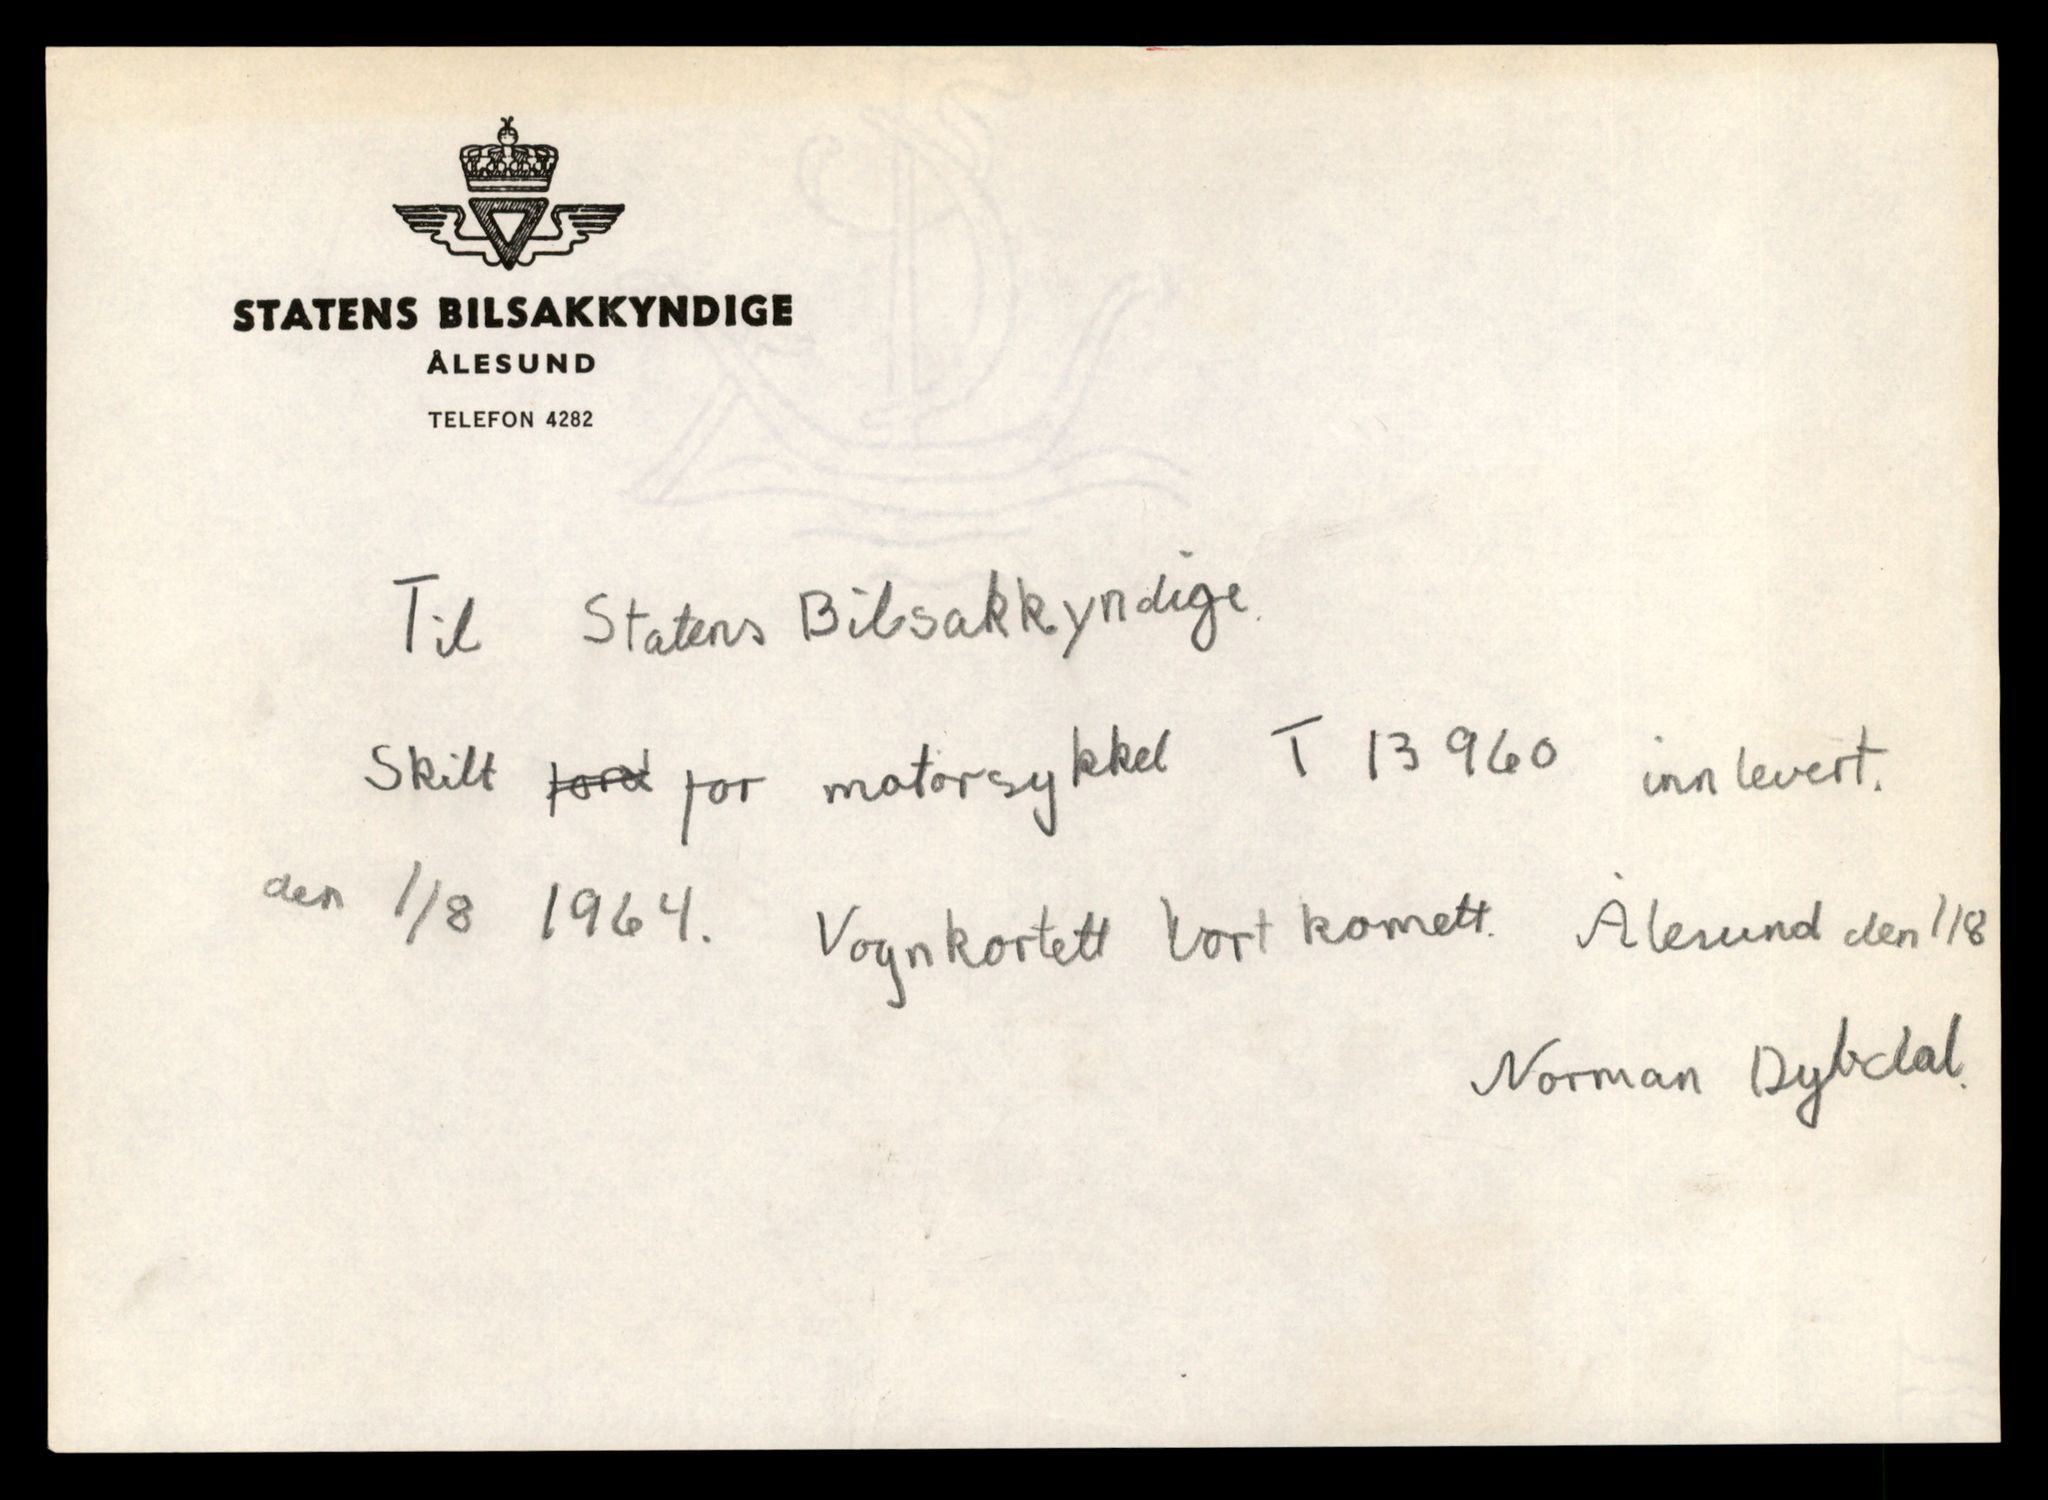 STATENS BILSAKKYNDIGE
ÅLESUND
TELEFON 4282
Til Statens Bilsakkyndige.
Skilt for motorsykkel T 13960 innlevert.
den 1/8 1964. Vognkortett bortkomett. Ålesund den 1/8
Norman Dybdal.